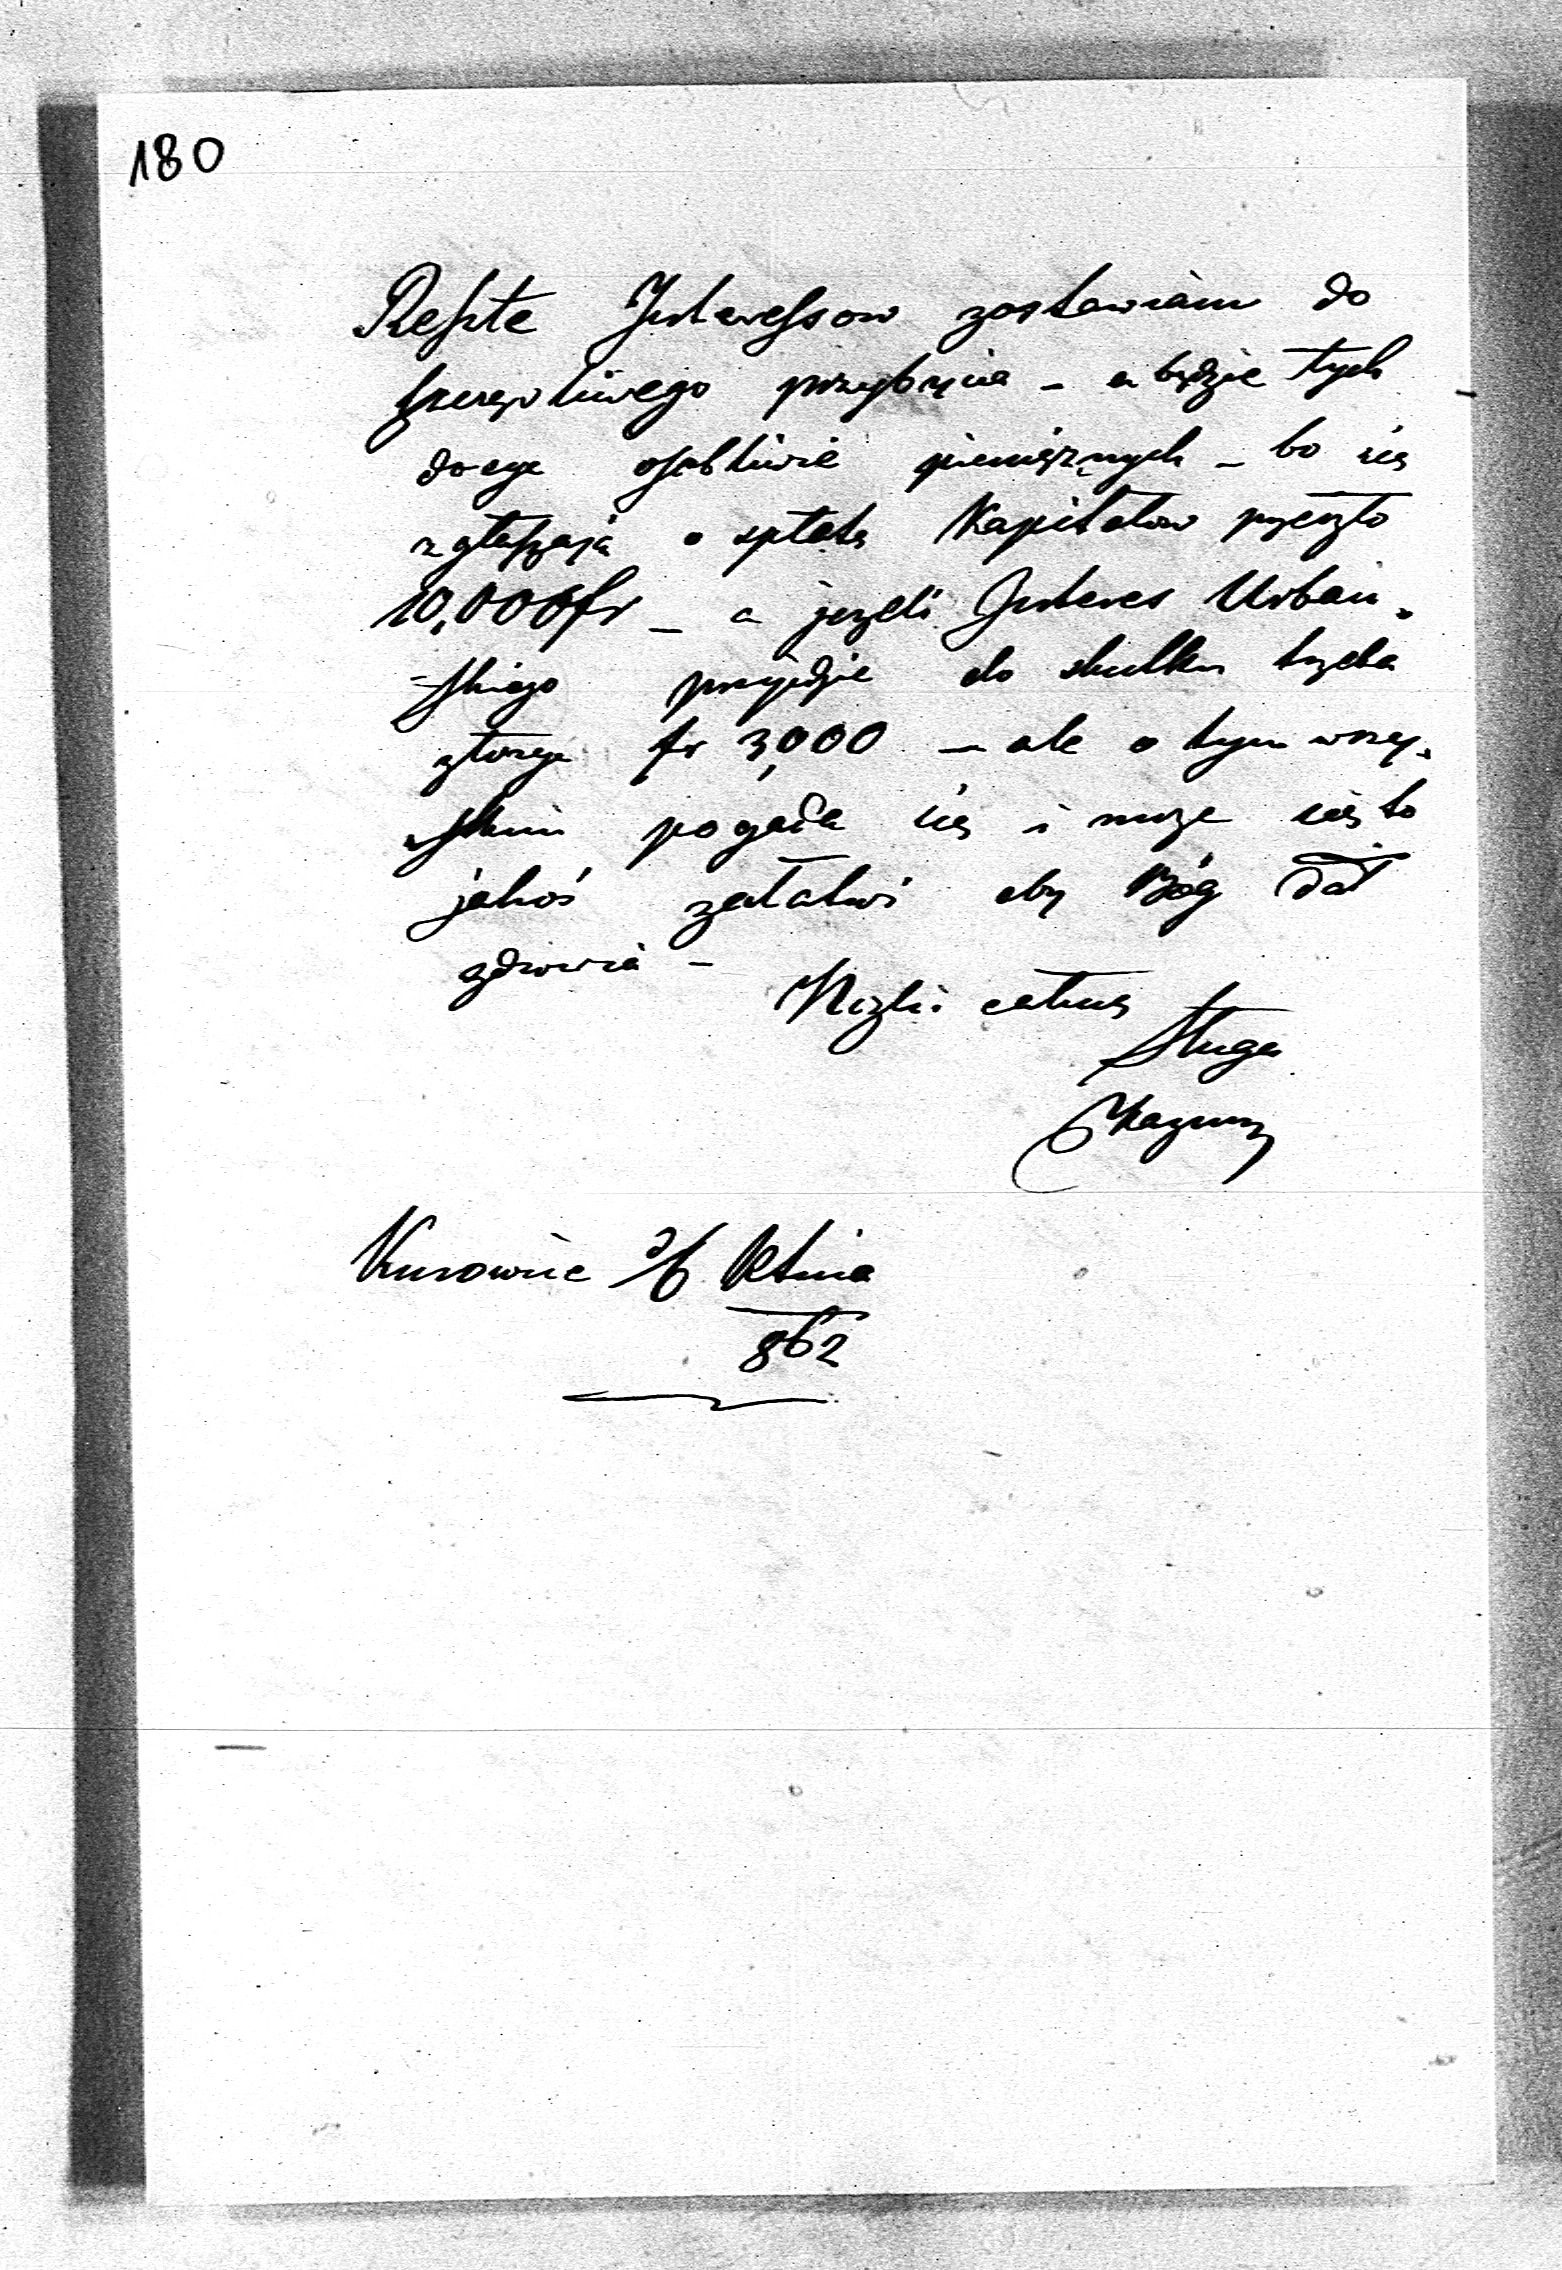 180
Resztę Interessow zostawiam do
szczęsliwego przybycia - a będzie tych
dosyc osobliwie pieniężnych - bo się
zgłaszają o spłatę Kapitałow przeszło
10,000 fr - a jezeli Interes Urbań-
-skiego przyidzie do skutku trzeba
złorzyc fr 3,000 - ale o tym wszy-
-stkim pogada się i może się to
jakoś załatwi aby Bóg dał
zdrowia -
Nózki całuię
Sługa
Kazimirz
Kurowice 3/6 Ktnia
862